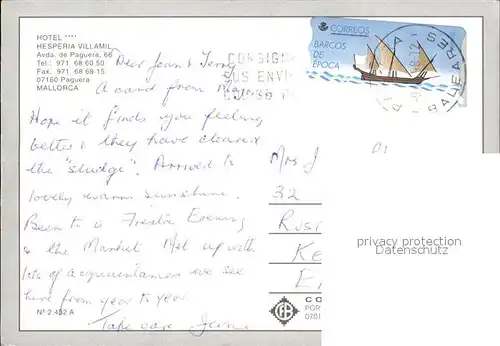 HOTEL ****
HESPERIA VILLAMIL
Avda. de Paguera, 66
Tel.: 971 68 60 50
Fax. 971 68 68 15
07160 Paguera
MALLORCA
CORREOS
BARCOS
DE
EPOCA
CONSIGN
SUS ENVI
BALEARES
Dear Joan &
A card from
Hope it finds you feeling
better & they have cleared
the "sludge". Arrived to
lovely warm sunshine.
Been to a Fiesta Evening
& the Market. Met up with
lots of acquaintances we see
here from year to year
Take care June
Mrs J
32
Rusi
Ke
E
privacy protection
Datenschutz
CO
POR
0701
Nº 2.432 A